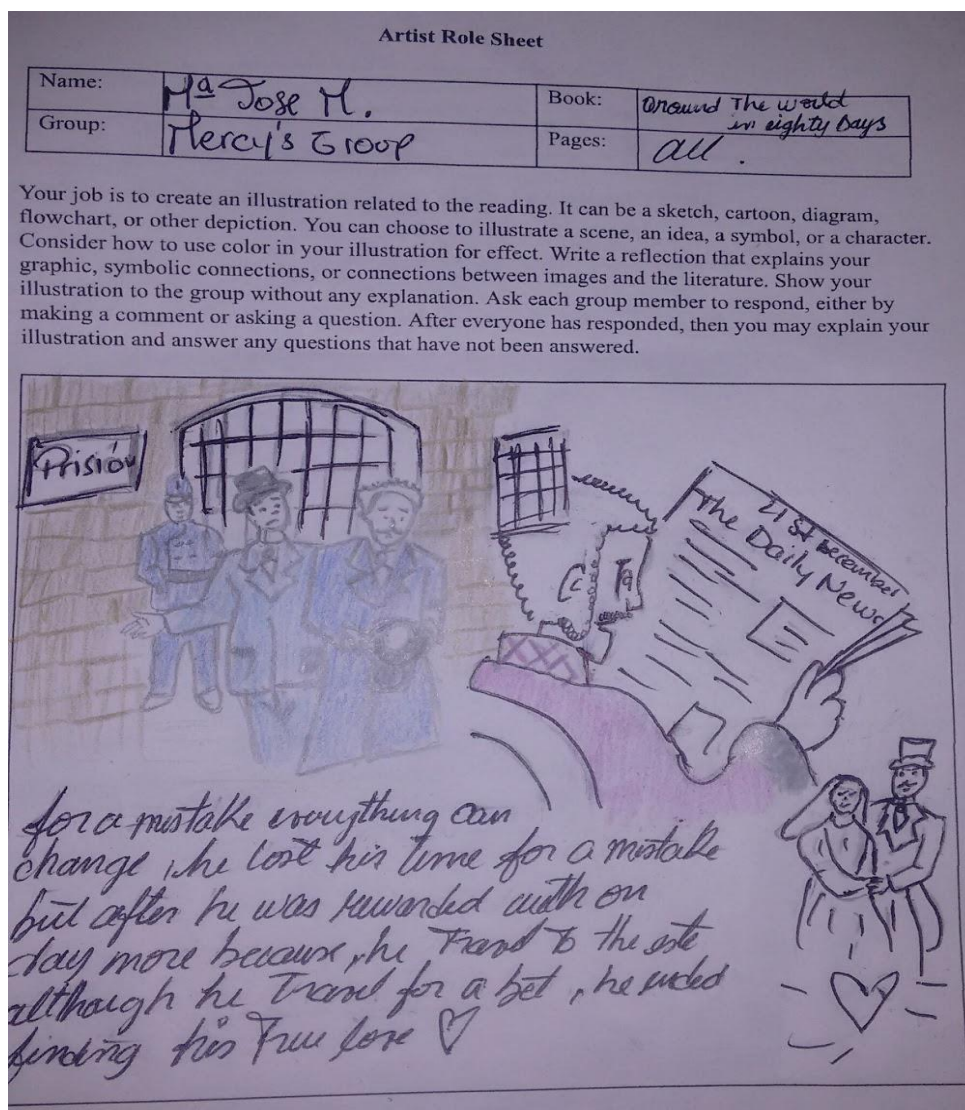 Artist Role Sheet
Name: Mª Jose M. Book: Around The world
in eighty Days
Group: Mercy's Group Pages: all.
Your job is to create an illustration related to the reading. It can be a sketch, cartoon, diagram,
flowchart, or other depiction. You can choose to illustrate a scene, an idea, a symbol, or a character.
Consider how to use color in your illustration for effect. Write a reflection that explains your
graphic, symbolic connections, or connections between images and the literature. Show your
illustration to the group without any explanation. Ask each group member to respond, either by
making a comment or asking a question. After everyone has responded, then you may explain your
illustration and answer any questions that have not been answered.
Prisión
21st december
The Daily News
for a mistake everything can
change, he lost his time for a mistake
but after he was rewarded with on
day more because, he Travel to the este
although he Travel for a bet, he ended
finding his True love ♡